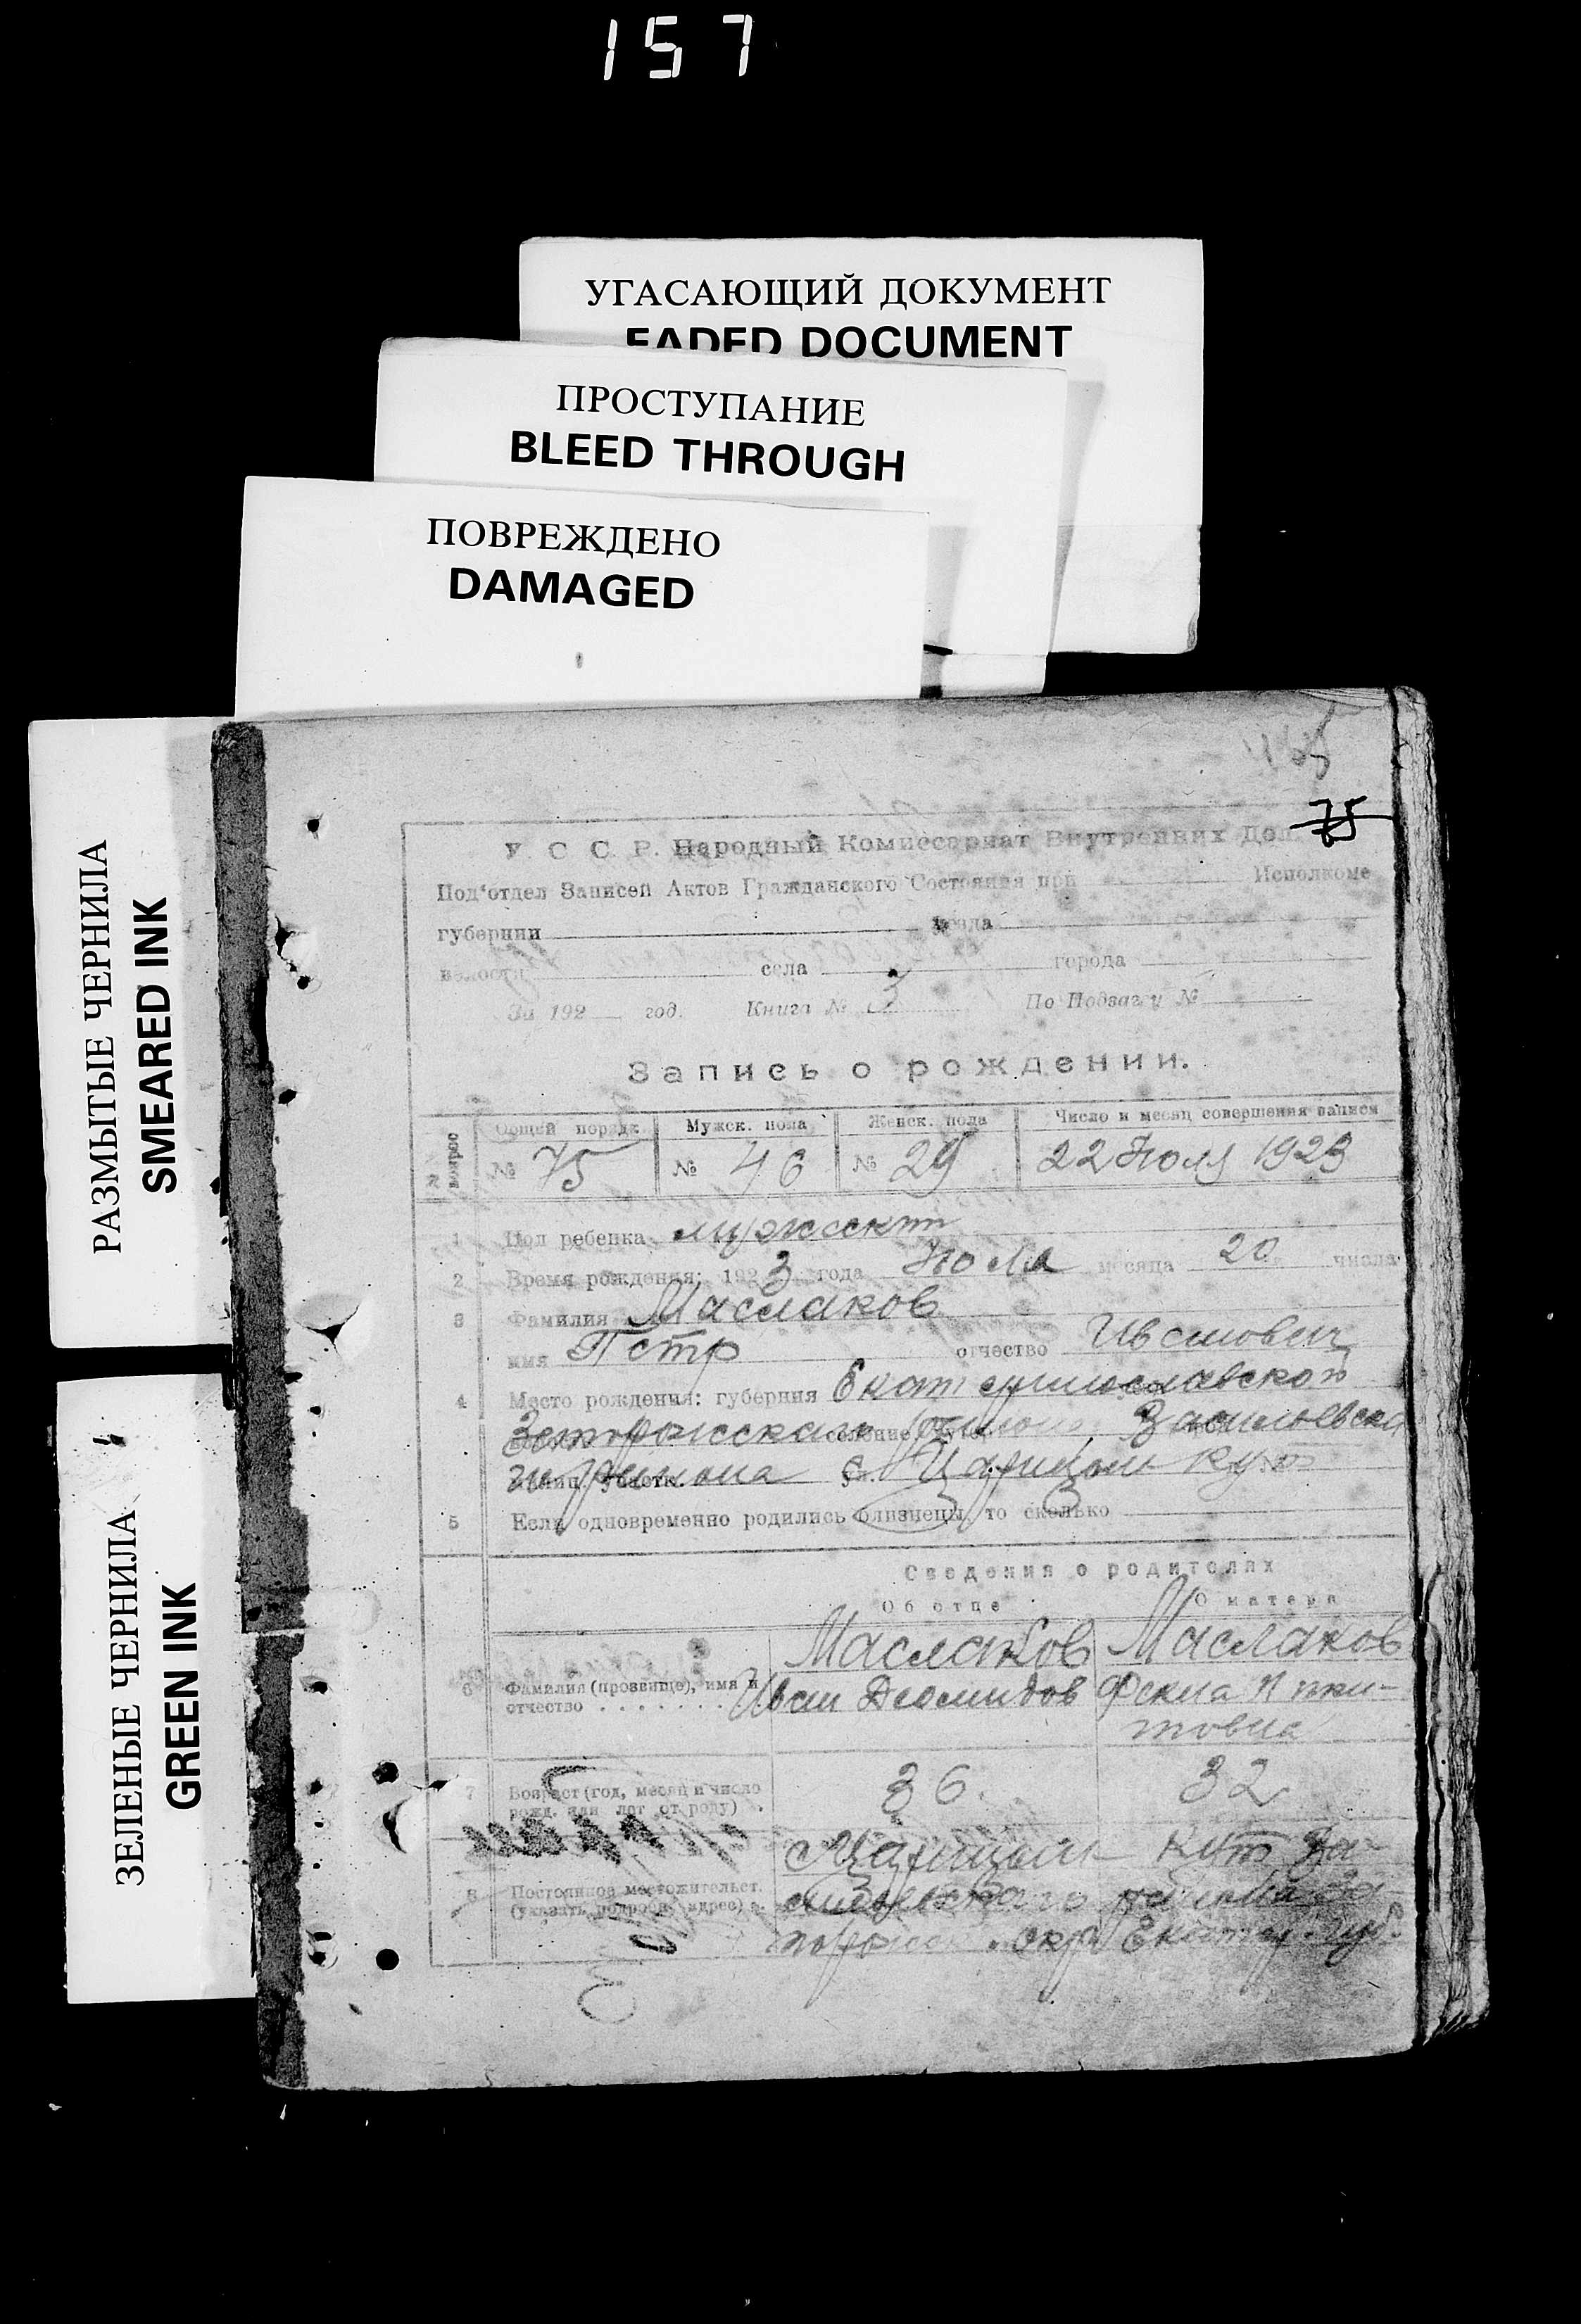 157
УГАСАЮЩИЙ ДОКУМЕНТ
FADED DOCUMENT
ПРОСТУПАНИЕ
BLEED THROUGH
ПОВРЕЖДЕНО
DAMAGED
РАЗМЫТЫЕ ЧЕРНИЛА
SMEARED INK
ЗЕЛЕНЫЕ ЧЕРНИЛА
GREEN INK
75
У. С. С. Р. Народный Комиссариат Внутренних Дел
Под'отдел Записей Актов Гражданского Состояния при Исполкоме
губернии уезда
волости села города
За 192 год. Книга № 3 По Подзагсу №
Запись о рождении.
№ вопрос Общей порядк Мужск. пола Женск. пола Число и месяц совершения записи
№ 75 № 46 № 29 22 Июля 1923
1 Пол ребенка мужской
2 Время рождения: 1923 года Июля месяца 20 числа
3 Фамилия Маслаков
имя Петр отчество Иванович
4 Место рождения: губерния Екатеринославской
Запорожского селение Васильевско
го района с. Царицын Кут
5 Если одновременно родились близнецы, то сколько
Сведения о родителях
Об отце О матери
Маслаков Маслаков
6 Фамилия (прозвище), имя и отчество . . . . . . . Иван Диомидов Фекла Ники-
товна
7 Возраст (год, месяц и число рожд. или лет от роду) . 36. 32
с. Царицын Кут Ва-
8 Постоянное местожительст. (указать подробн. адрес) сильевского района За-
порожск. окр. Екатер. губ.